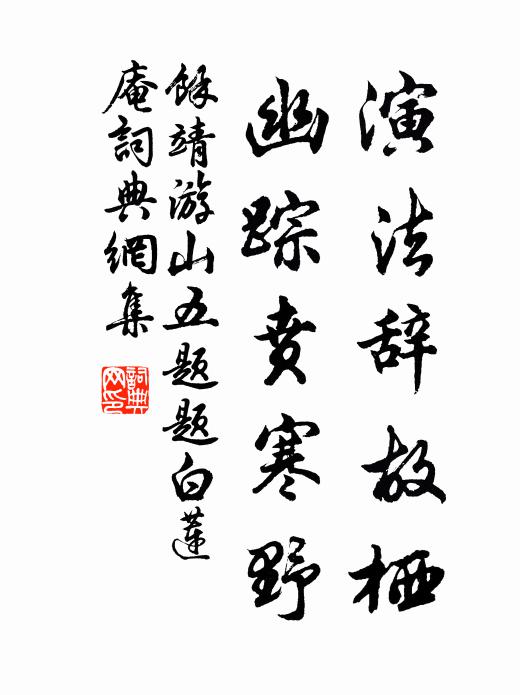 演法辞故栖
幽踪贲寒野
馀靖游山五题题白莲
庵詞典網集
詞典网印